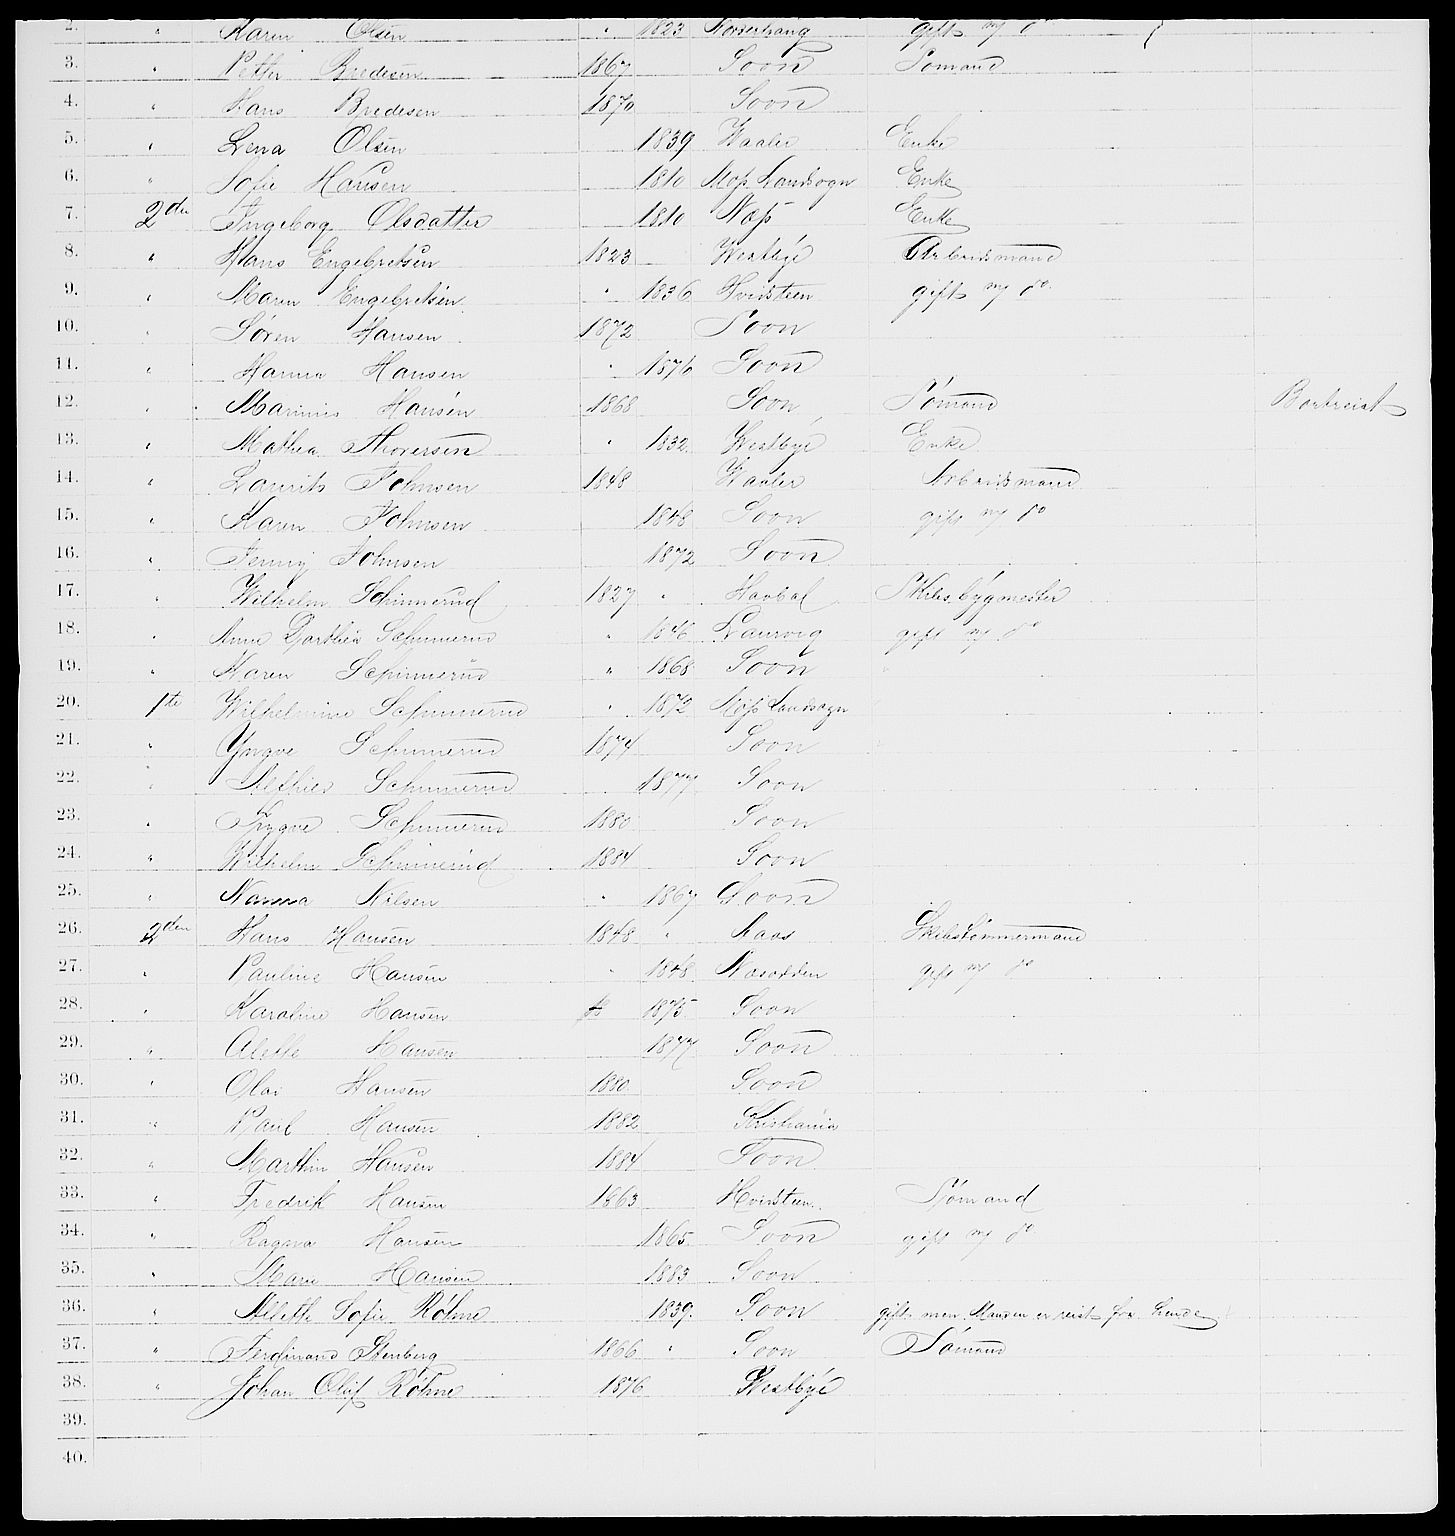 2. " Karen Olsen " 1823 Norderhaug gift m/ do
3. " Petter Bredesen 1867 Soon Sømand
4. " Hans Bredesen 1870 Soon
5. " Lena Olsen 1839 Waaler Enke
6. " Sofie Hansen 1810 Moss Landsogn Enke
7. 2den Ingeborg Olsdatter 1810 Næs Enke
8. " Hans Engebretsen 1823 Westbye Arbeidsmand
9. " Maren Engebretsen " 1836 Hvidsteen gift m/ do
10. " Søren Hansen 1872 Soon
11. " Hanna Hansen " 1876 Soon
12. " Marinius Hansen 1868 Soon Sømand Bortreist
13. " Mathea Thoresen " 1832 Westbye Enke
14. " Laurits Johnsen 1848 Waaler Arbeidsmand
15. " Karen Johnsen 1848 Soon gift m/ do
16. " Jenny Johnsen 1872 Soon
17. " Wilhelm Schinnerud 1827 " Haabøl Skibsbygmester
18. " Anne Dorthea Schinnerud " 1846 Laurvig gift m/ do
19. " Karen Schinnerud " 1868 Soon
20. 1ste Wilhelmine Schinnerud " 1872 Moss Landsogn
21. " Yngve Schinnerud 1874 Soon
22. " Schinnerud 1877 Soon
23. " Trygve Schinnerud 1880 Soon
24. " Wilhelm Schinnerud 1884 Soon
25. " Nanna Nilsen " 1867 Soon
26. 2den Hans Hansen 1848 " Aaos Skibstømmermand
27. " Pauline Hansen " 1848 Næsodden gift m/ do
28. " Karoline Hansen 1875 Soon
29. " Alette Hansen 1877 Soon
30. " Olai Hansen 1880 Soon
31. " Paul Hansen 1882 Kristiania
32. " Marthin Hansen 1884 Soon
33. " Fredrik Hansen 1863 Hvidsteen Sømand
34. " Ragna Hansen 1865 Soon gift m/ do
35. " Marie Hansen 1883 Soon
36. " Alleth Sofie Røhne 1839 Soon gift men Manden er reist fra hende
37. " Ferdinand Stenberg 1866 " Soon Sømand
38. " Johan Olaf Røhne 1876 Westbye
39.
40.